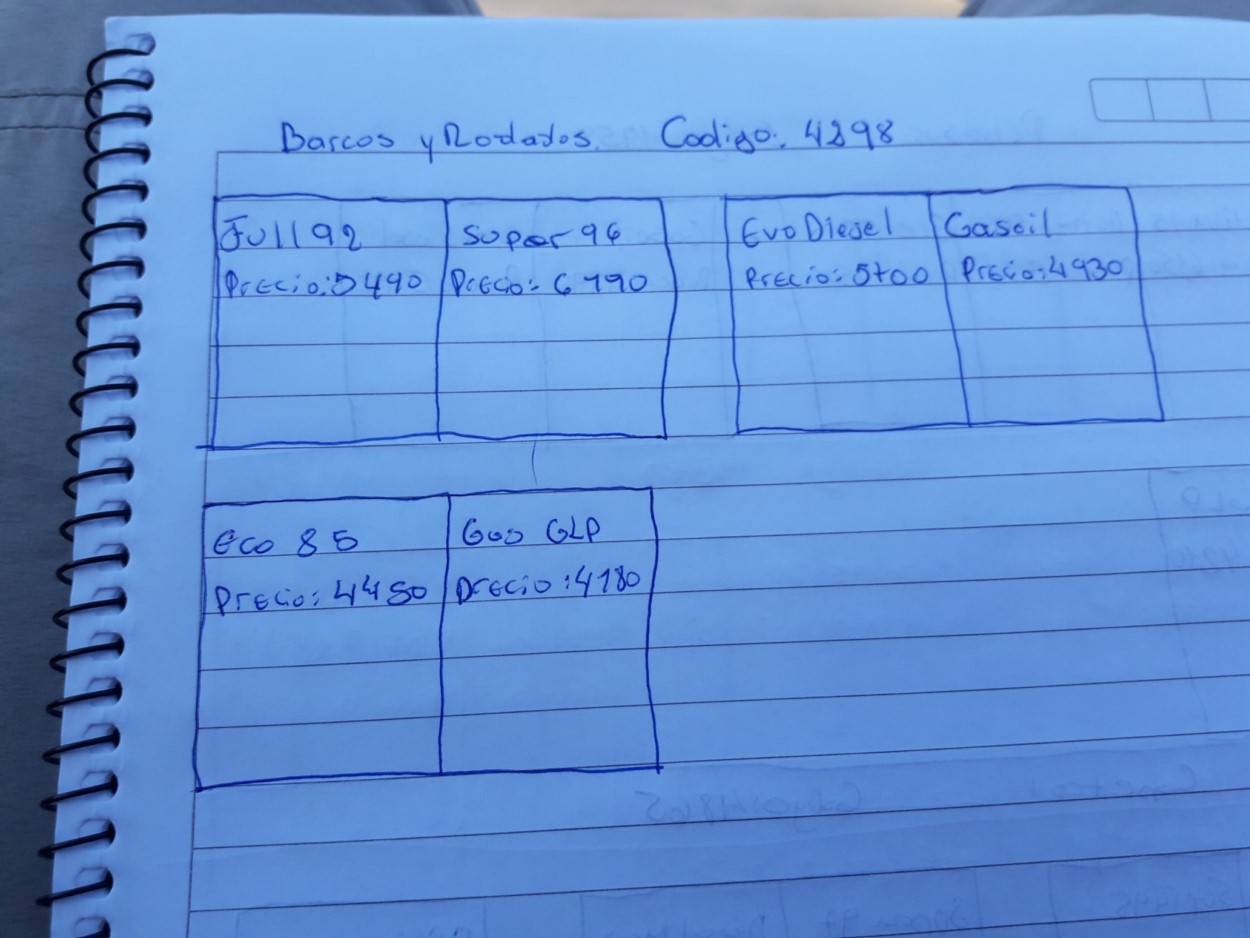 Barcos y Rodados. Codigo: 4298
Full 92
Precio: 5490
Super 96
Precio: 6790
Evo Diesel
Precio: 5700
Gasoil
Precio: 4930
Eco 85
Precio: 4450
Gas GLP
Precio: 4180